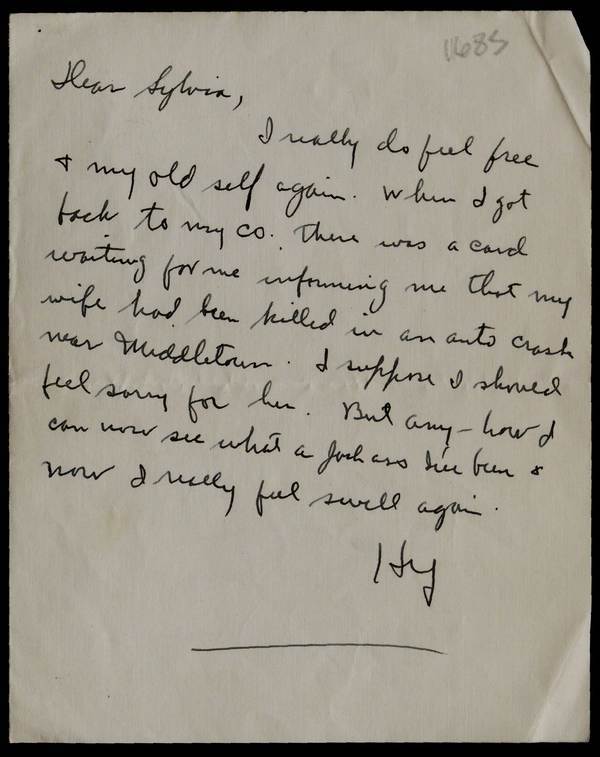 11685
Dear Sylvia,
I really do feel free
& my old self again. When I got
back to my co. there was a card
waiting for me informing me that my
wife had been killed in an auto crash
near Middletown. I suppose I should
feel sorry for her. But any-how I
can now see what a jackass I've been &
now I really feel swell again.
Hy